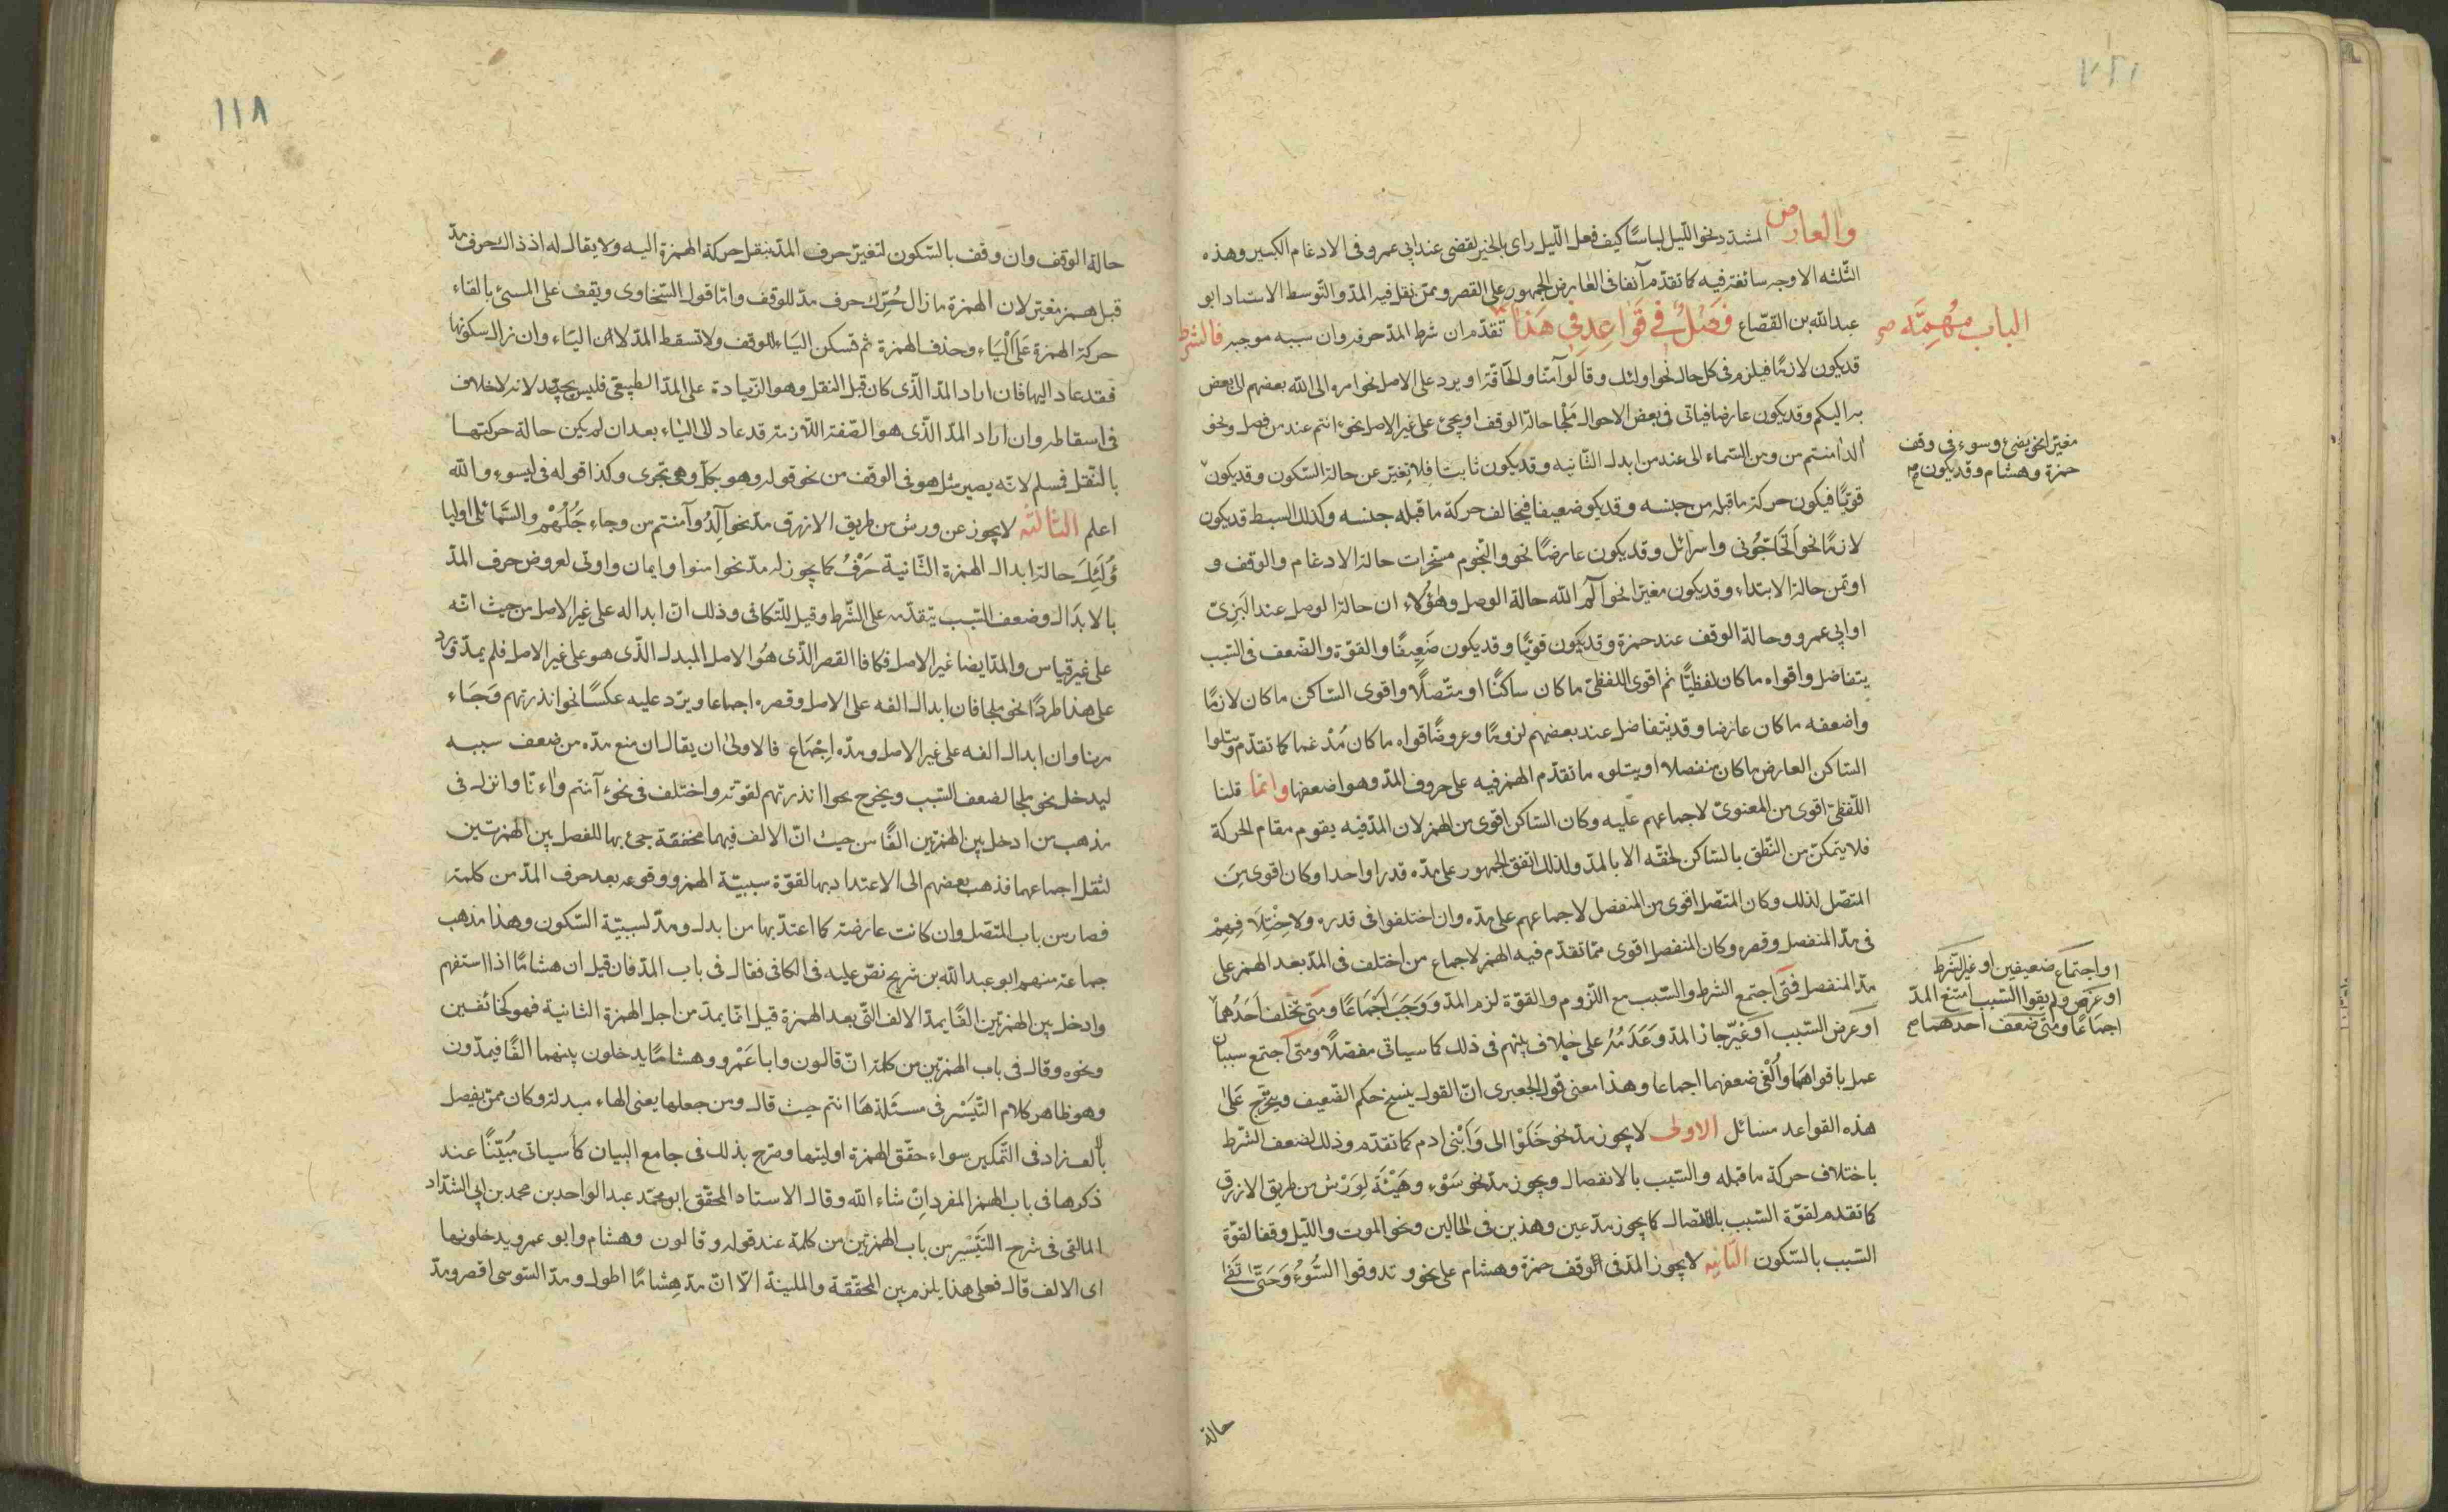 والعارض المشدد نحو الليل لباسا كيف فعل الليل رأى بالخير لقضى عند ابي عمرو فى الادغام الكبير وهذه
الثلثه الاوجه سائغة فيه كما تقدم آنفا فى العارض والجمهور على القصر وممن نقل فيه المد والتوسط الاستاد ابو
عبدالله بن القصاع فصل في قواعد في هذا تقدم ان شرط المد حرفه وان سببه موجبه فالشرط
الباب مهمة صح
قد يكون لازما فيلزم فى كل حال نحو اولئك وقالوا آمنا والحاقة او يرد على الاصل نحو امره الى الله بعضهم الى بعض
به اليكم وقد يكون عارضا فياتى فى بعض الاحوال ملجا حالة الوقف او يجئ على غير الاصل نحو ءانتم عند من فصل ونحو
ءالد ءامنتم من ومن السماء الى عند من ابدل الثانيه وقد يكون ثابتا فلا يتغير عن حالة السكون وقد يكون
مغيرا نحو يضئ وسوء فى وقف
حمزة وهشام وقد يكون صح
قويا فيكون حركة ما قبله من جنسه وقد يكو ضعيفا فيخالف حركة ما قبله جنسه وكذلك السبط قد يكون
لازما نحو اتحاجونى واسرائل وقد يكون عارضا نحو والنجوم مسخرات حالة الادغام والوقف و
اوتمن حالة الابتداء وقد يكون مغيرا نحو آلم الله حالة الوصل وهؤلاء ان حالة الوصل عند البزى
او ابي عمرو وحالة الوقف عند حمزة وقد يكون قويا وقد يكون ضعيفا والقوة والضعف فى السبب
يتفاضل واقواه ما كان لفظيا ثم اقوى اللفظى ما كان ساكنا او متصلا واقوى الساكن ما كان لازما
واضعفه ما كان عارضا وقد يتفاضل عند بعضهم لزوما وعروضا قواه ما كان مدغما كما تقدم ويتلوا
الساكن العارض ما كان منفصلا او يتلوه ما تقدم الهمز فيه على حروف المد وهو اضعفها وانما قلنا
اللفظى اقوى من المعنوى لاجماعهم عليه وكان الساكن اقوى من الهمز لان المد فيه يقوم مقام الحركة
فلا يتمكن من النطق بالساكن لحقه الا بالمد ولذلك اتفق الجمهور على مده قدرا واحدا وكان اقوى من
المتصل لذلك وكان المتصل اقوى من المنفصل لاجماعهم على مده وان اختلفوا فى قدره ولاختلافهم
فى مد المنفصل وقصره وكان المنفصل اقوى مما تقدم فيه الهمز لاجماع من اختلف فى المد بعد الهمز على
مد المنفصل فمتى اجتمع الشرط والسبب مع اللزوم والقوة لزم المد ووجب اجماعا ومتى تخلف احدهما
او اجتماع ضعيفين او غير الشرط
او عرض ولم يقوا السبب امتنع المد
اجماعا ومتى ضعف احدهما صح
او عرض السبب او غير جاز المد وعدمه على خلاف بينهم فى ذلك كما سياتى مفصلا ومتى اجتمع سببان
عمل باقواهما والغى ضعفهما اجماعا وهذا معنى قول الجعبرى ان القول ينسخ حكم الضعيف ويخرج على
هذه القواعد مسائل الاولى لا يجوز مد نحو خلوا الى وابنى ادم كما تقدم وذلك لضعف الشرط
باختلاف حركة ما قبله والسبب بالانفصال ويجوز مد نحو سوء وهيئة لورش من طريق الازرق
كما تقدم لقوة السبب بالاتصال كما يجوز مد عين وهذين فى الحالين ونحو الموت والليل وقفا لقوة
السبب بالسكون الثانيه لا يجوز المد فى الوقف حمزة وهشام على نحو و تدوقوا السوء وحتى تفئ
حالة
١١٨
حالة الوقف وان وقف بالسكون لتغير حرف المد بنقل حركة الهمزة اليه ولا يقال له اذ ذاك حرف مد
قبل همز مغير لان الهمزة ما زال حرك حرف مد للوقف واما قول السخاوى ويقف على المسئ بالقاء
حركة الهمزة على الياء وحذف الهمزة ثم تسكن الياء للوقف ولا تسقط المد لان الياء وان زال سكونها
فقد عاد اليها فان اراد المد الذى كان قبل النقل وهو الزيادة على المد الطبيعى فليس بجيد لانه لا خلاف
فى اسقاطه وان اراد المد الذى هو الصفة اللازمة قد عاد الى الياء بعد ان لم يكن حالة حركتها
بالنقل فسلم لانه يصير مثل هو فى الوقف من نحو قوله وهو بكل وهى تجرى وكذا قوله فى ليسوء والله
اعلم الثالثه لا يجوز عن ورش من طريق الازرق مد نحو آلد وآمنتم من وجاء جلهم والسمائ الى اوليا
ؤلئك حالة ابدال الهمزة الثانية حرف كما يجوز له مد نحو امنوا وايمان واوتى لعروض حرف المد
بالابدال وضعف السبب يتقدمه على الشرط وقيل للتكافى وذلك ان ابداله على غير الاصل من حيث انه
على غير قياس والمد ايضا غير الاصل فكافا القصر الذى هو الاصل المبدل الذى هو على غير الاصل فلم يمد ويرد
على هذا طردا نحو ملجا فان ابدال الفه على الاصل وقصره اجماعا ويرد عليه عكسا نحو انذرتهم وجاء
مرنا وان ابدال الفه على غير الاصل ومده اجماع فالاولى ان يقال ان منع مده من ضعف سببه
ليدخل نحو ملجا لضعف السبب ويخرج نحو اانذرتهم لقوته واختلف فى نحو آنتم واءنا وانزل فى
مذهب من ادخل بين الهمزتين الفا من حيث ان الالف فيهما مخففة جئ بها للفصل بين الهمزتين
لثقل اجماعهما فذهب بعضهم الى الاعتداد بها لقوة سببية الهمز ووقوعه بعد حرف المد من كلمة
فصار من باب المتصل وان كانت عارضة كما اعتد بها من ابدل ومد لسببية السكون وهذا مذهب
جماعة منهم ابو عبدالله بن شريح نص عليه فى الكافى فقال فى باب المد فان قيل ان هشاما اذا استفهم
وادخل بين الهمزتين الفا يمد الالف التى بعد الهمزة قيل انما يمد من اجل الهمزة الثانية فهو كخائفين
ونحوه وقال فى باب الهمزتين من كلمة ان قالون وابا عمرو وهشاما يدخلون بينهما الفا فيمدون
وهو ظاهر كلام التيسر فى مسئلة ها انتم حيث قال ومن جعلها يعنى الهاء مبدلة وكان ممن يفصل
بالف زاد فى التمكين سواء حقق الهمزة او لينها وصرح بذلك فى جامع البيان كما سياتى مبينا عند
ذكرها فى باب الهمز المفرد ان شاء الله وقال الاستاد المحقق ابو محمد عبد الواحد بن محمد بن ابي الشداد
المالقى فى شرح التيسير من باب الهمزتين من كلمة عند قوله وقالون وهشام وابو عمرو يدخلونها
اى الالف قال فعلى هذا يلزم بين المحققة والملينة الا ان مد هشاما اطول ومد السوسى اقصر ومد